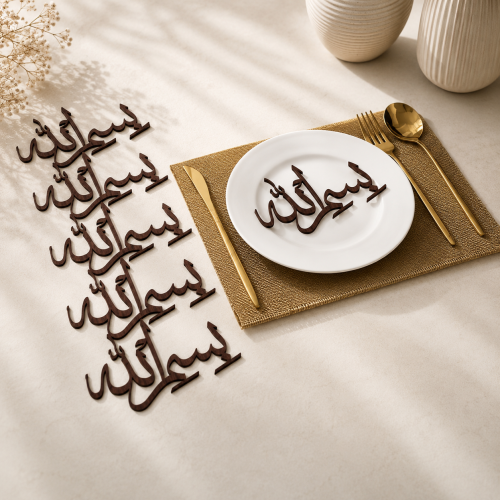 بسم الله
بسم الله
بسم الله
بسم الله
بسم الله
بسم الله